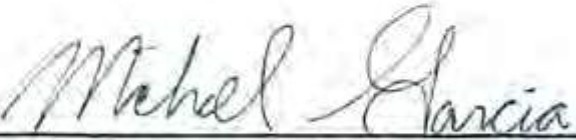 Michael Garcia